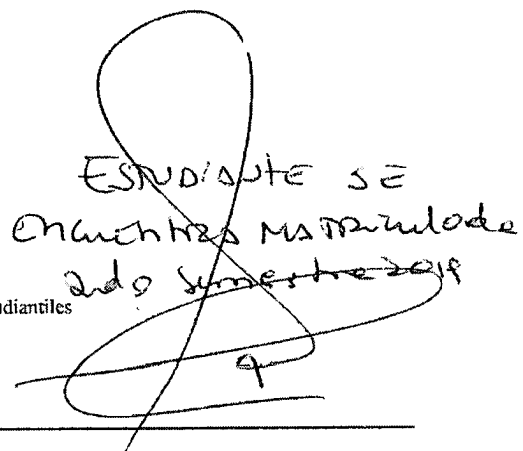 ESTUDIANTE SE
encuentra MATRICULADA
2do semestre 2019
udiantiles